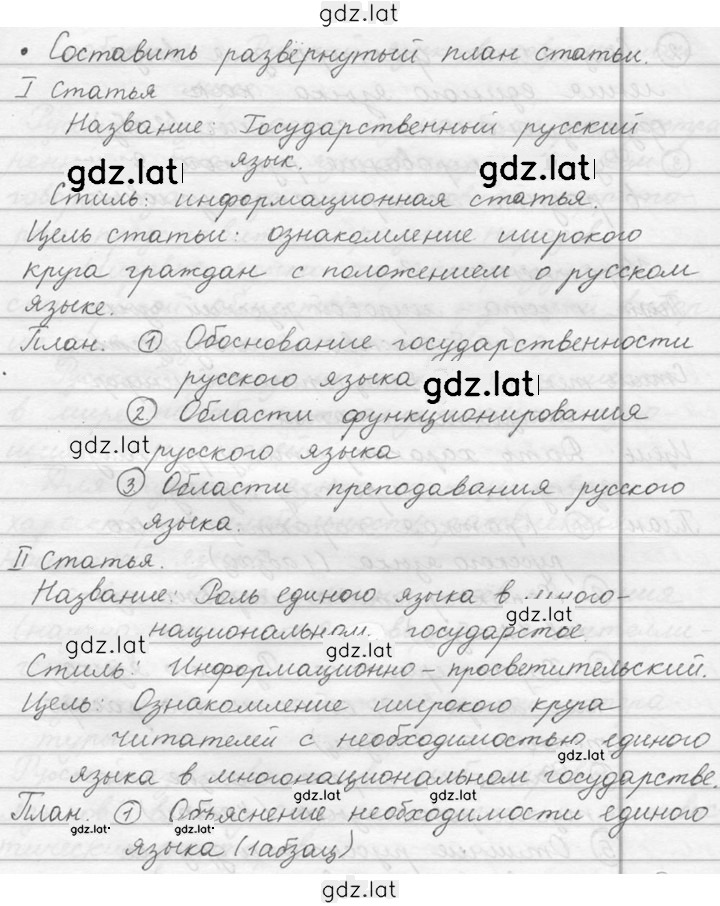 gdz.lat
• Составить развёрнутый план статьи.
I Статья
Название: Государственный русский
язык.
gdz.lat
gdz.lat
Стиль: информационная статья.
Цель статьи: ознакомление широкого
круга граждан с положением о русском
языке.
План. ① Обоснование государственности
русского языка
gdz.lat
② Области функционирования
gdz.lat
русского языка
③ Области преподавания русского
языка.
II Статья.
Название: Роль единого языка в много-
gdz.lat
национальном государстве.
gdz.lat
gdz.lat
Стиль: Информационно-просветительский.
Цель: Ознакомление широкого круга
читателей с необходимостью единого
gdz.lat
языка в многонациональном государстве.
gdz.lat
gdz.lat
План. ① Объяснение необходимости единого
gdz.lat
gdz.lat
языка (1абзац)
gdz.lat